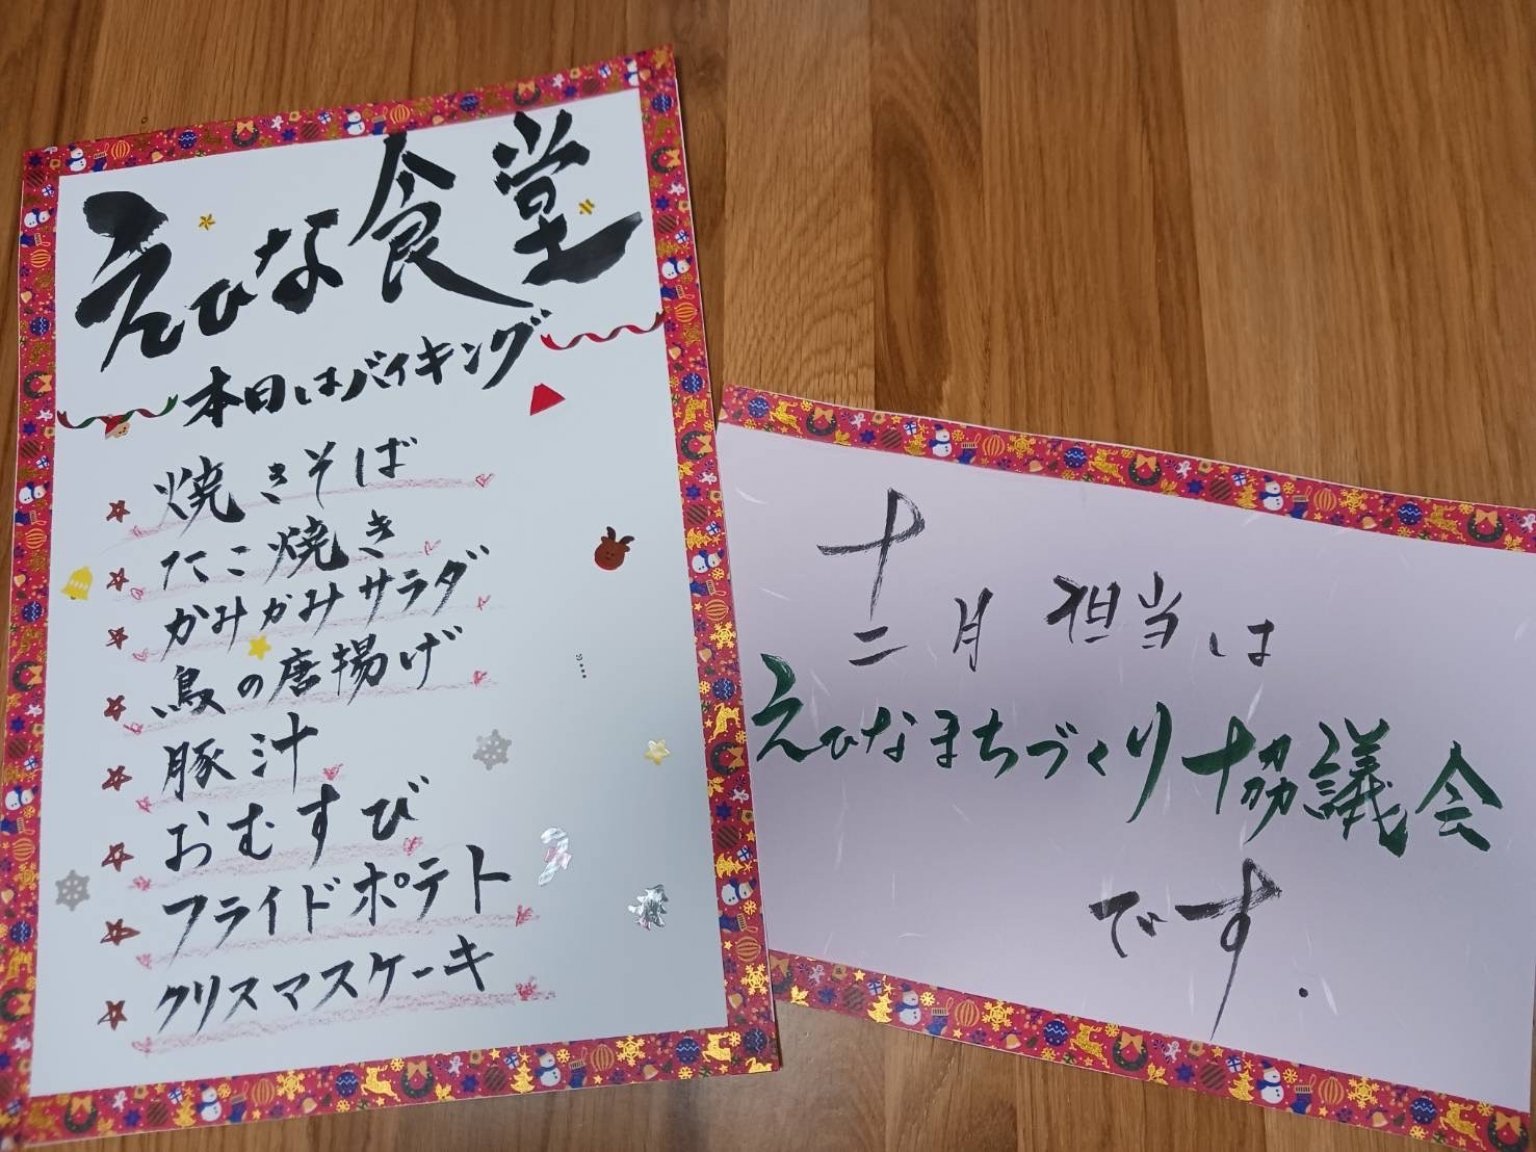 えひな食堂
本日はバイキング
焼きそば
たこ焼き
かみかみサラダ
鳥の唐揚げ
豚汁
おむすび
フライドポテト
クリスマスケーキ
十二月担当は
えひなまちづくり協議会
です.